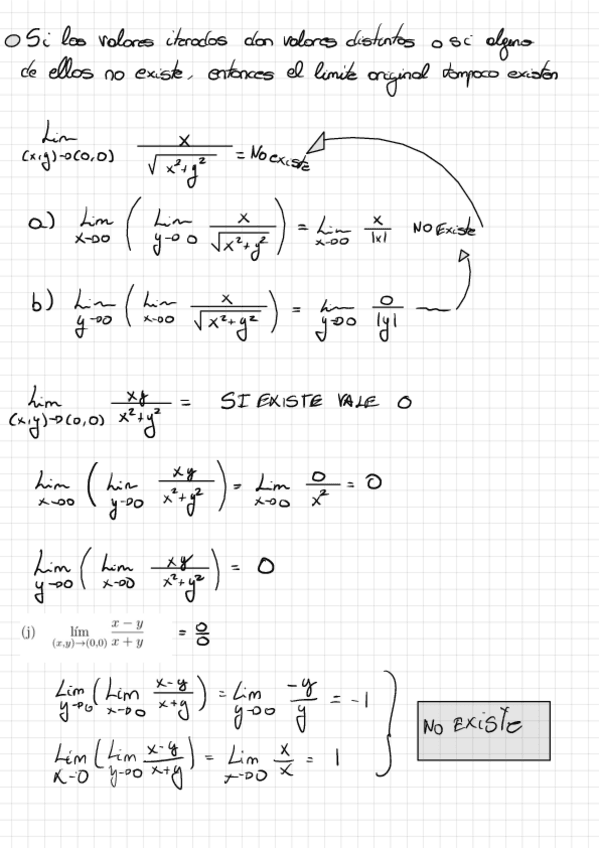 ○ Si los valores iterados dan valores distintos o si alguno
de ellos no existe, entonces el limite original tampoco existen
Lim (x,y)→(0,0) x/√(x²+y²) = No existe
a) Lim x→0 ( Lim y→0 x/√(x²+y²) ) = Lim x→0 x/|x| No Existe
b) Lim y→0 ( Lim x→0 x/√(x²+y²) ) = Lim y→0 0/|y|
Lim (x,y)→(0,0) xy/(x²+y²) = SI EXISTE VALE 0
Lim x→0 ( Lim y→0 xy/(x²+y²) ) = Lim x→0 0/x² = 0
Lim y→0 ( Lim x→0 xy/(x²+y²) ) = 0
(j) lím (x,y)→(0,0) x − y / x + y = 0/0
Lim y→0 ( Lim x→0 x-y/x+y ) = Lim y→0 -y/y = -1
Lim x→0 ( Lim y→0 x-y/x+y ) = Lim x→0 x/x = 1
NO EXISTE